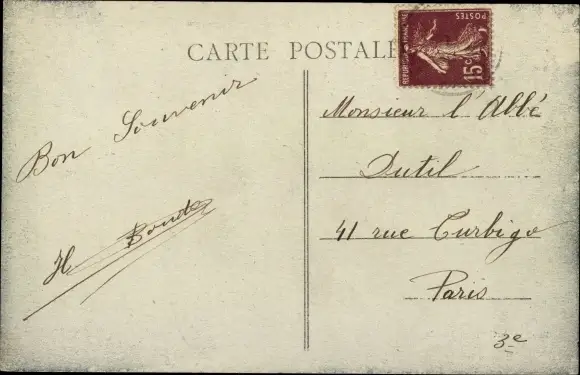 CARTE POSTALE
POSTES
REPUBLIQUE FRANÇAISE
15c
Bon Souvenir
H
Monsieur l'Abbé
Dutil
41 rue Turbigo
Paris
3e